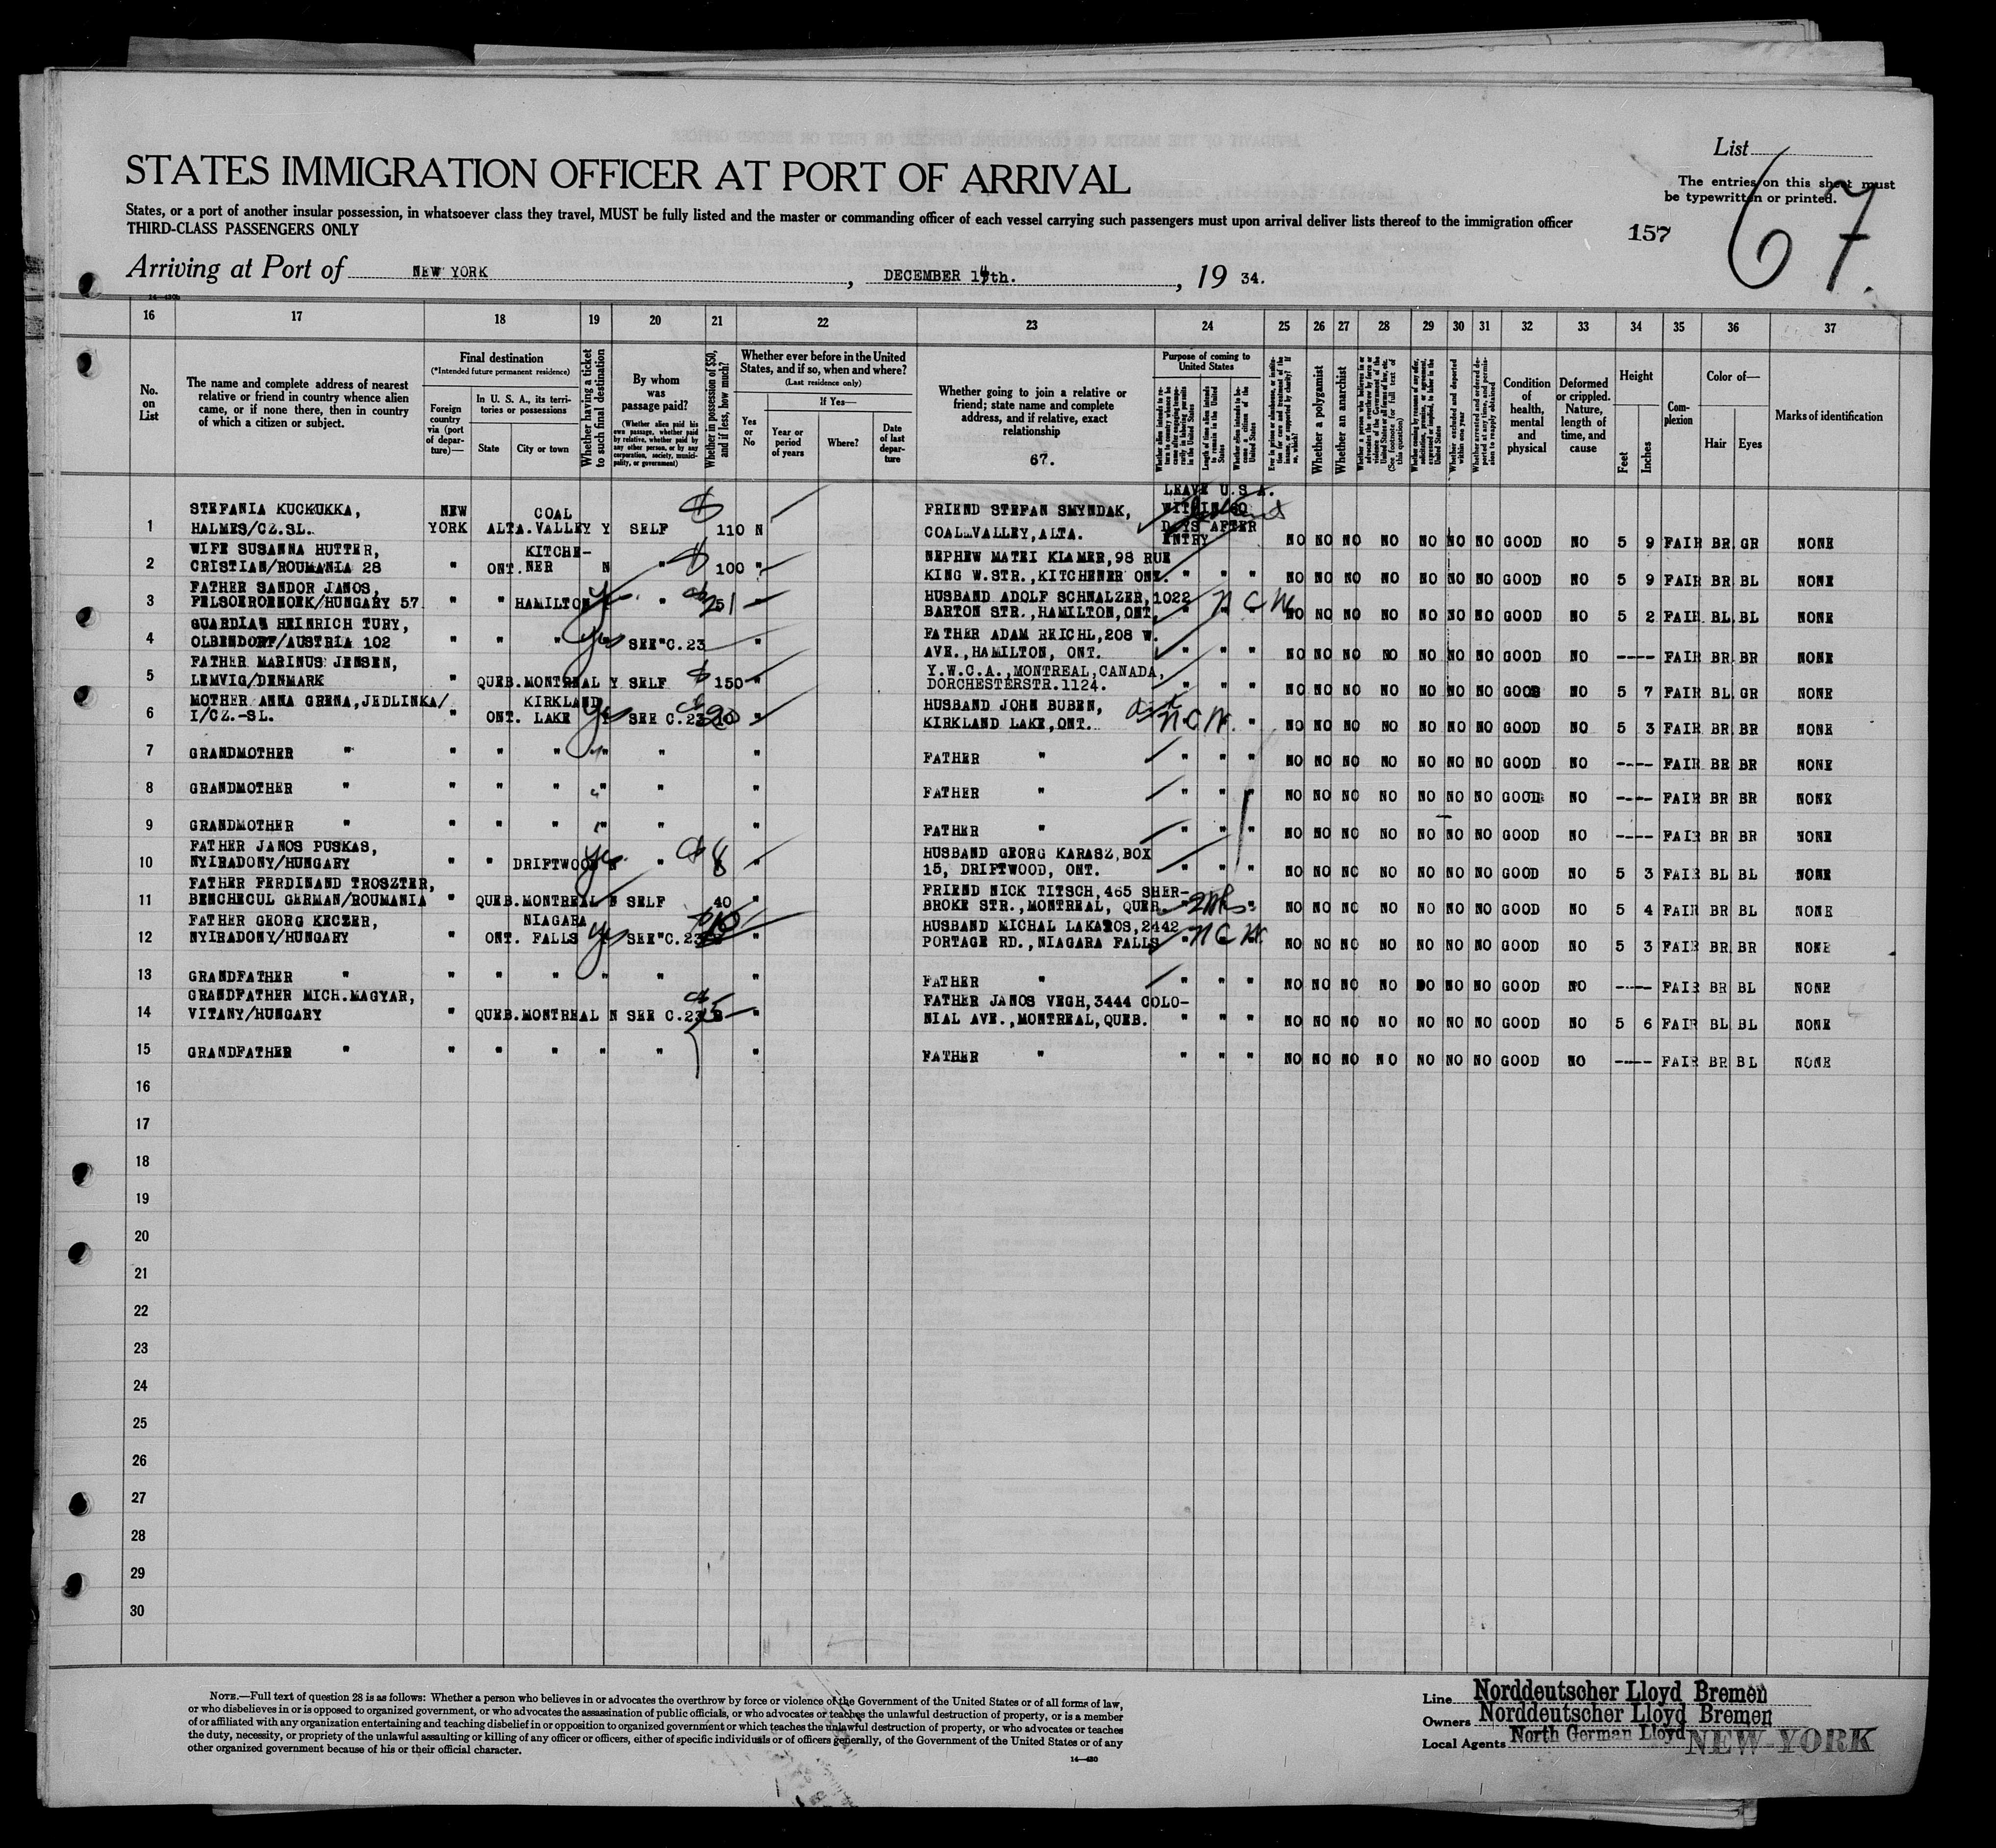 List
67.
The entries on this sheet must
be typewritten or printed.
STATES IMMIGRATION OFFICER AT PORT OF ARRIVAL
States, or a port of another insular possession, in whatsoever class they travel, MUST be fully listed and the master or commanding officer of each vessel carrying such passengers must upon arrival deliver lists thereof to the immigration officer
THIRD-CLASS PASSENGERS ONLY
157
Arriving at Port of NEW YORK, DECEMBER th., 19 34.
16 17 18 19 20 21 22 23 24 25 26 27 28 29 30 31 32 33 34 35 36 37
No. on List
The name and complete address of nearest relative or friend in country whence alien came, or if none there, then in country of which a citizen or subject.
Final destination
(*Intended future permanent residence)
Foreign country via (port of departure)—
In U. S. A., its territories or possessions
State
City or town
Whether having a ticket to such final destination
By whom was passage paid?
(Whether alien paid his own passage, whether paid by relative, whether paid by any other person, or by any corporation, society, municipality, or government)
Whether in possession of $50, and if less, how much?
Whether ever before in the United States, and if so, when and where?
(Last residence only)
Yes or No
If Yes—
Year or period of years
Where?
Date of last departure
Whether going to join a relative or friend; state name and complete address, and if relative, exact relationship
67.
Purpose of coming to United States
Whether a polygamist
Whether an anarchist
Condition of health, mental and physical
Deformed or crippled. Nature, length of time, and cause
Height
Feet
Inches
Complexion
Color of—
Hair
Eyes
Marks of identification
LEAVE U.S.A.
WITHIN 60
DAYS AFTER
ENTRY
1 STEFANIA KUCKUKKA, NEW COAL FRIEND STEFAN SMYNDAK,
HALMES/CZ.SL. YORK ALTA. VALLEY Y SELF $ 110 N COAL VALLEY, ALTA. NO NO NO NO NO NO NO GOOD NO 5 9 FAIR BR GR NONE
2 WIFE SUSANNA HUTTER, KITCHE- NEPHEW MATEI KLAMER, 98 RUE
CRISTIAN/ROUMANIA 28 " ONT. NER N " $ 100 " KING W.STR., KITCHENER ONT. " " " NO NO NO NO NO NO NO GOOD NO 5 9 FAIR BR BL NONE
3 FATHER SANDOR JANOS, HUSBAND ADOLF SCHNALZER, 1022
57. " " HAMILTON " BARTON STR., HAMILTON, ONT. NO NO NO NO NO NO NO GOOD NO 5 2 FAIR BL BL NONE
4 GUARDIAN HEINRICH TURY, FATHER ADAM REICHL, 208 W.
OLBENDORF/AUSTRIA 102 " " " yes SEE C.23 " AVE., HAMILTON, ONT. " " " NO NO NO NO NO NO NO GOOD NO ---- FAIR BR BR NONE
5 FATHER MARINUS JENSEN, Y.W.C.A., MONTREAL, CANADA,
LEMVIG/DENMARK " QUEB. MONTREAL Y SELF $ 150 " DORCHESTERSTR. 1124. " " " NO NO NO NO NO NO NO GOOD NO 5 7 FAIR BL GR NONE
6 MOTHER ANNA GRENA, JEDLINKA/ KIRKLAND HUSBAND JOHN BUBEN,
I/CZ.-SL. " ONT. LAKE yes SEE C.23 " KIRKLAND LAKE, ONT. NO NO NO NO NO NO NO GOOD NO 5 3 FAIR BR BR NONE
7 GRANDMOTHER " " " " " " " FATHER " " " " NO NO NO NO NO NO NO GOOD NO ---- FAIR BR BR NONE
8 GRANDMOTHER " " " " " " " FATHER " " " " NO NO NO NO NO NO NO GOOD NO ---- FAIR BR BR NONE
9 GRANDMOTHER " " " " " " " FATHER " " " " NO NO NO NO NO NO NO GOOD NO ---- FAIR BR BR NONE
10 FATHER JANOS PUSKAS, HUSBAND GEORG KARASZ, BOX
NYIRADONY/HUNGARY " " DRIFTWOOD yes " $ 8 " 15, DRIFTWOOD, ONT. " " " NO NO NO NO NO NO NO GOOD NO 5 3 FAIR BL BL NONE
11 FATHER FERDINAND TROSZTER, FRIEND NICK TITSCH, 465 SHER-
BENCHECUL GERMAN/ROUMANIA " QUEB. MONTREAL N SELF 40 " BROKE STR., MONTREAL, QUEB. NO NO NO NO NO NO NO GOOD NO 5 4 FAIR BR BL NONE
12 FATHER GEORG KECZER, NIAGARA HUSBAND MICHAL LAKATOS, 2442
NYIRADONY/HUNGARY " ONT. FALLS yes SEE C.23 " PORTAGE RD., NIAGARA FALLS NO NO NO NO NO NO NO GOOD NO 5 3 FAIR BR BR NONE
13 GRANDFATHER " " " " " " " FATHER " " " " NO NO NO NO NO NO NO GOOD NO ---- FAIR BR BL NONE
14 GRANDFATHER MICH. MAGYAR, FATHER JANOS VEGH, 3444 COLO-
VITANY/HUNGARY " QUEB. MONTREAL N SEE C.23 " NIAL AVE., MONTREAL, QUEB. " " " NO NO NO NO NO NO NO GOOD NO 5 6 FAIR BL BL NONE
15 GRANDFATHER " " " " " " " FATHER " " " " NO NO NO NO NO NO NO GOOD NO ---- FAIR BR BL NONE
16
17
18
19
20
21
22
23
24
25
26
27
28
29
30
NOTE.—Full text of question 28 is as follows: Whether a person who believes in or advocates the overthrow by force or violence of the Government of the United States or of all forms of law,
or who disbelieves in or is opposed to organized government, or who advocates the assassination of public officials, or who advocates or teaches the unlawful destruction of property, or is a member
of or affiliated with any organization entertaining and teaching disbelief in or opposition to organized government or which teaches the unlawful destruction of property, or who advocates or teaches
the duty, necessity, or propriety of the unlawful assaulting or killing of any officer or officers, either of specific individuals or of officers generally, of the Government of the United States or of any
other organized government because of his or their official character.
14—430
Line Norddeutscher Lloyd Bremen
Owners Norddeutscher Lloyd Bremen
Local Agents North German Lloyd NEW YORK